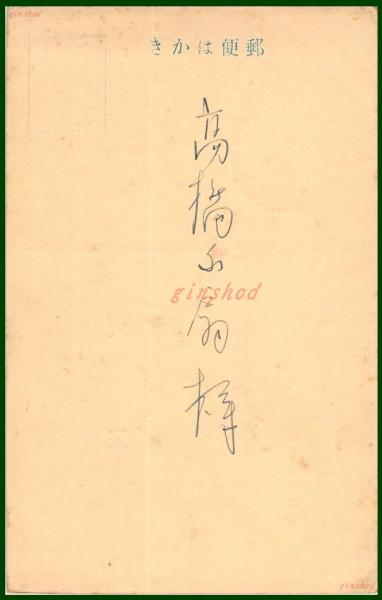 ginshod
郵便はかき
高橋小扇様
ginshod
ginshod